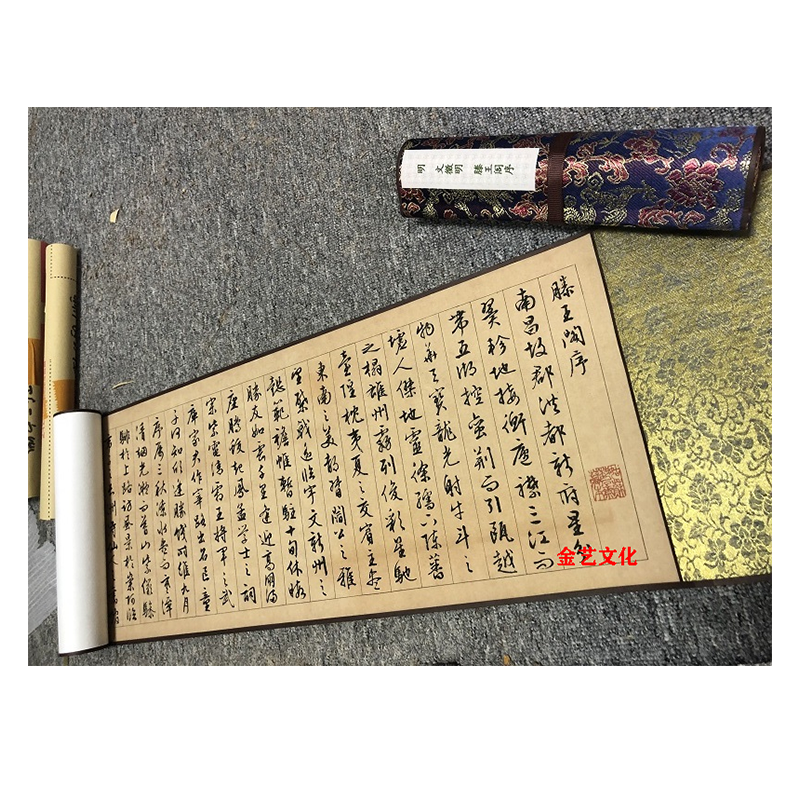 明 文徵明 滕王阁序
滕王閣序
南昌故郡洪都新府星分
翼軫地接衡廬襟三江而
帶五湖控蠻荊而引甌越
物華天寶龍光射牛斗之
墟人傑地靈徐孺下陳蕃
之榻雄州霧列俊彩星馳
臺隍枕夷夏之交賓主盡
東南之美都督閻公之雅
望棨戟遙臨宇文新州之
懿範襜帷暫駐十旬休暇
勝友如雲千里逢迎高朋滿
座騰蛟起鳳孟學士之詞
宗紫電清霜王將軍之武
庫家君作宰路出名區童
子何知躬逢勝餞時維九月
序屬三秋潦水盡而寒潭
清煙光凝而暮山紫儼驂
騑於上路訪風景於崇阿臨
金艺文化